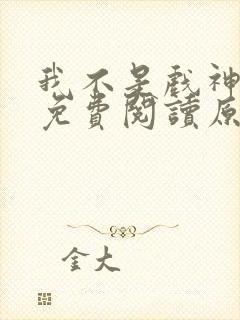 我不是戏神
免費閱讀原
金大